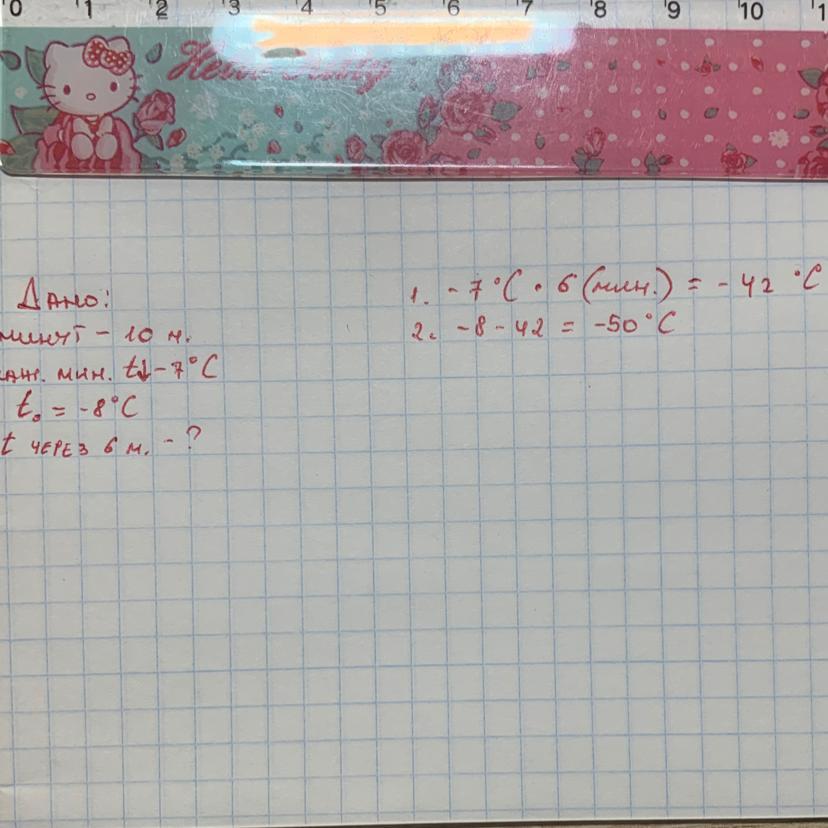 0 1 2 3 4 5 6 7 8 9 10 1
Hello Kitty
Дано:
минут - 10 м.
аж. мин. t↓-7°C
t₀ = -8°C
t через 6 м. - ?
1. -7°C · 6 (мин.) = -42 °C
2. -8 - 42 = -50°C